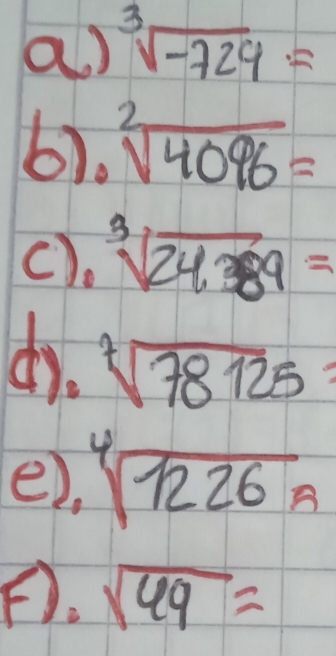 a) ∛-729 =
b). ²√4096 =
c). ∛24,389 =
d). ⁷√78125 =
e). ∜1226 =
F). √49 =